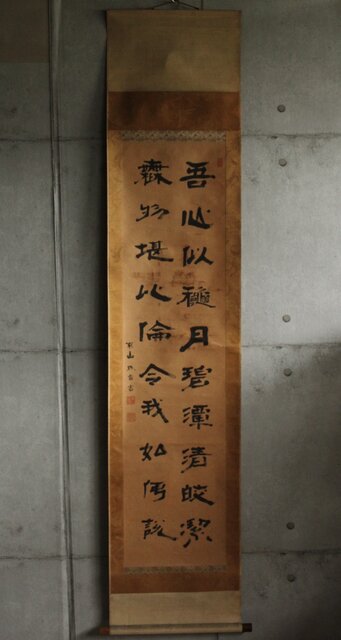 吾心似穐月碧潭清皎潔
無物堪比倫令我如何說
山